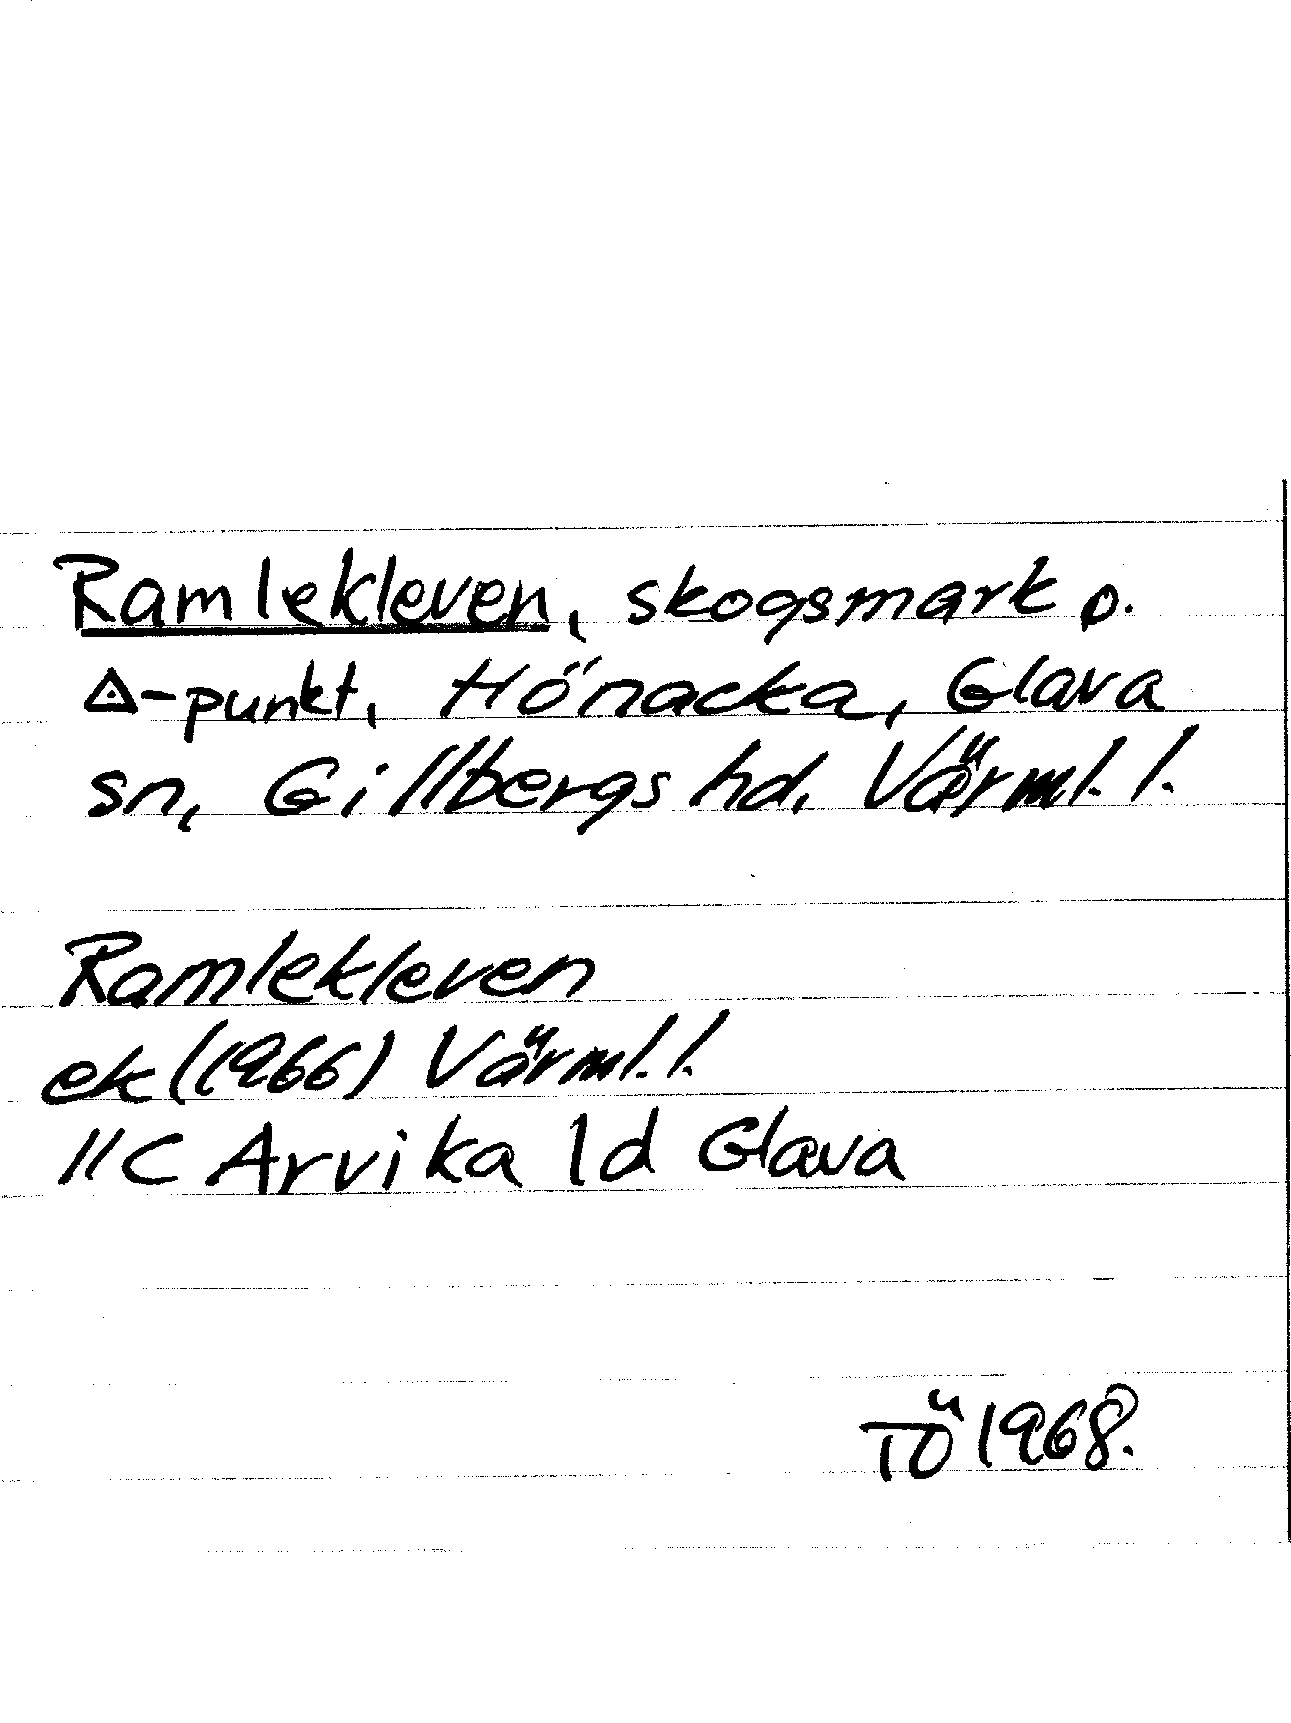 Ramlekleven, skogsmark o.
◬-punkt, Hönacka, Glava
sn, Gillbergs hd, Värml. l.
Ramlekleven
ek (1966) Värml. l.
11C Arvika 1d Glava
TÖ 1968.